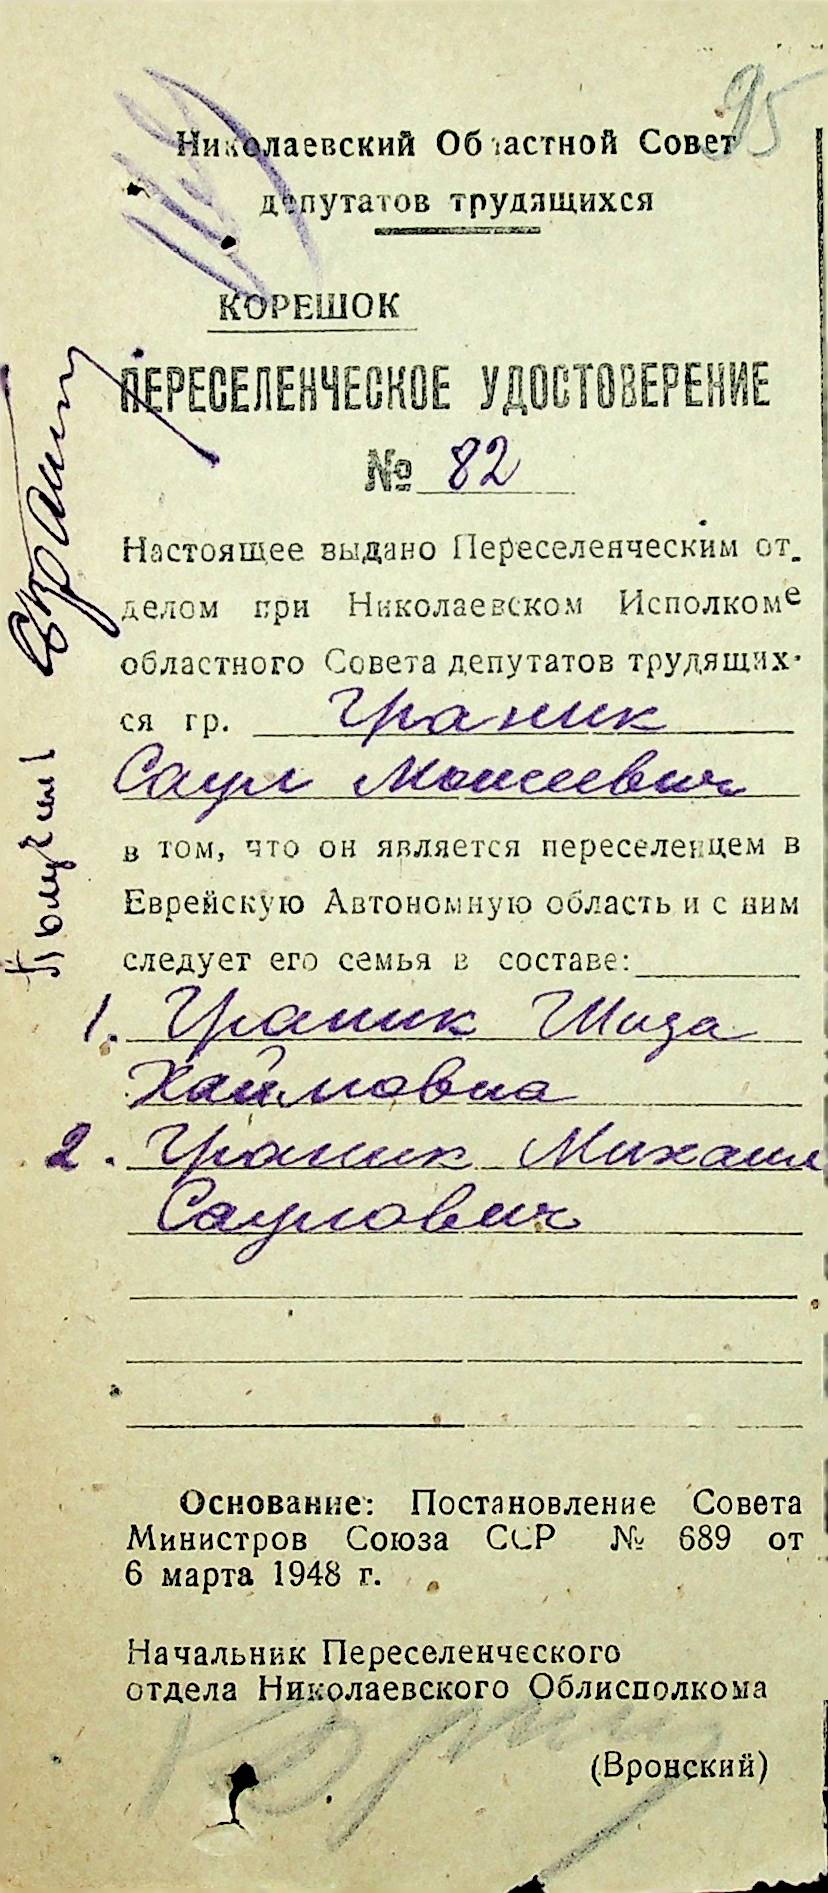 95
Николаевский Областной Совет
депутатов трудящихся
КОРЕШОК
ПЕРЕСЕЛЕНЧЕСКОЕ УДОСТОВЕРЕНИЕ
№ 82
Настоящее выдано Переселенческим от-
делом при Николаевском Исполкоме
областного Совета депутатов трудящих-
ся гр. Граник
Саул Моисеевич
в том, что он является переселенцем в
Еврейскую Автономную область и с ним
следует его семья в составе:
1. Граник Шиза
Хаймовна
2. Граник Михаил
Саулович
Основание: Постановление Совета
Министров Союза ССР № 689 от
6 марта 1948 г.
Начальник Переселенческого
отдела Николаевского Облисполкома
(Вронский)
Получил